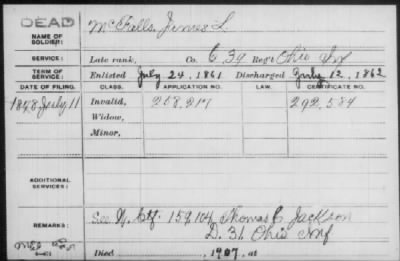 DEAD
NAME OF SOLDIER: McFalls, James L.
SERVICE: Late rank, Co. C 39 Reg't Ohio Inf
TERM OF SERVICE: Enlisted July 24, 1861 Discharged July 12, 1862
DATE OF FILING. CLASS. APPLICATION NO. LAW. CERTIFICATE NO.
1878 July 11 Invalid, 258,217 292,584
Widow,
Minor,
ADDITIONAL SERVICES:
REMARKS: See Ctf. 159,104 Thomas Jackson
D. 31 Ohio Inf
Died , 1907, at